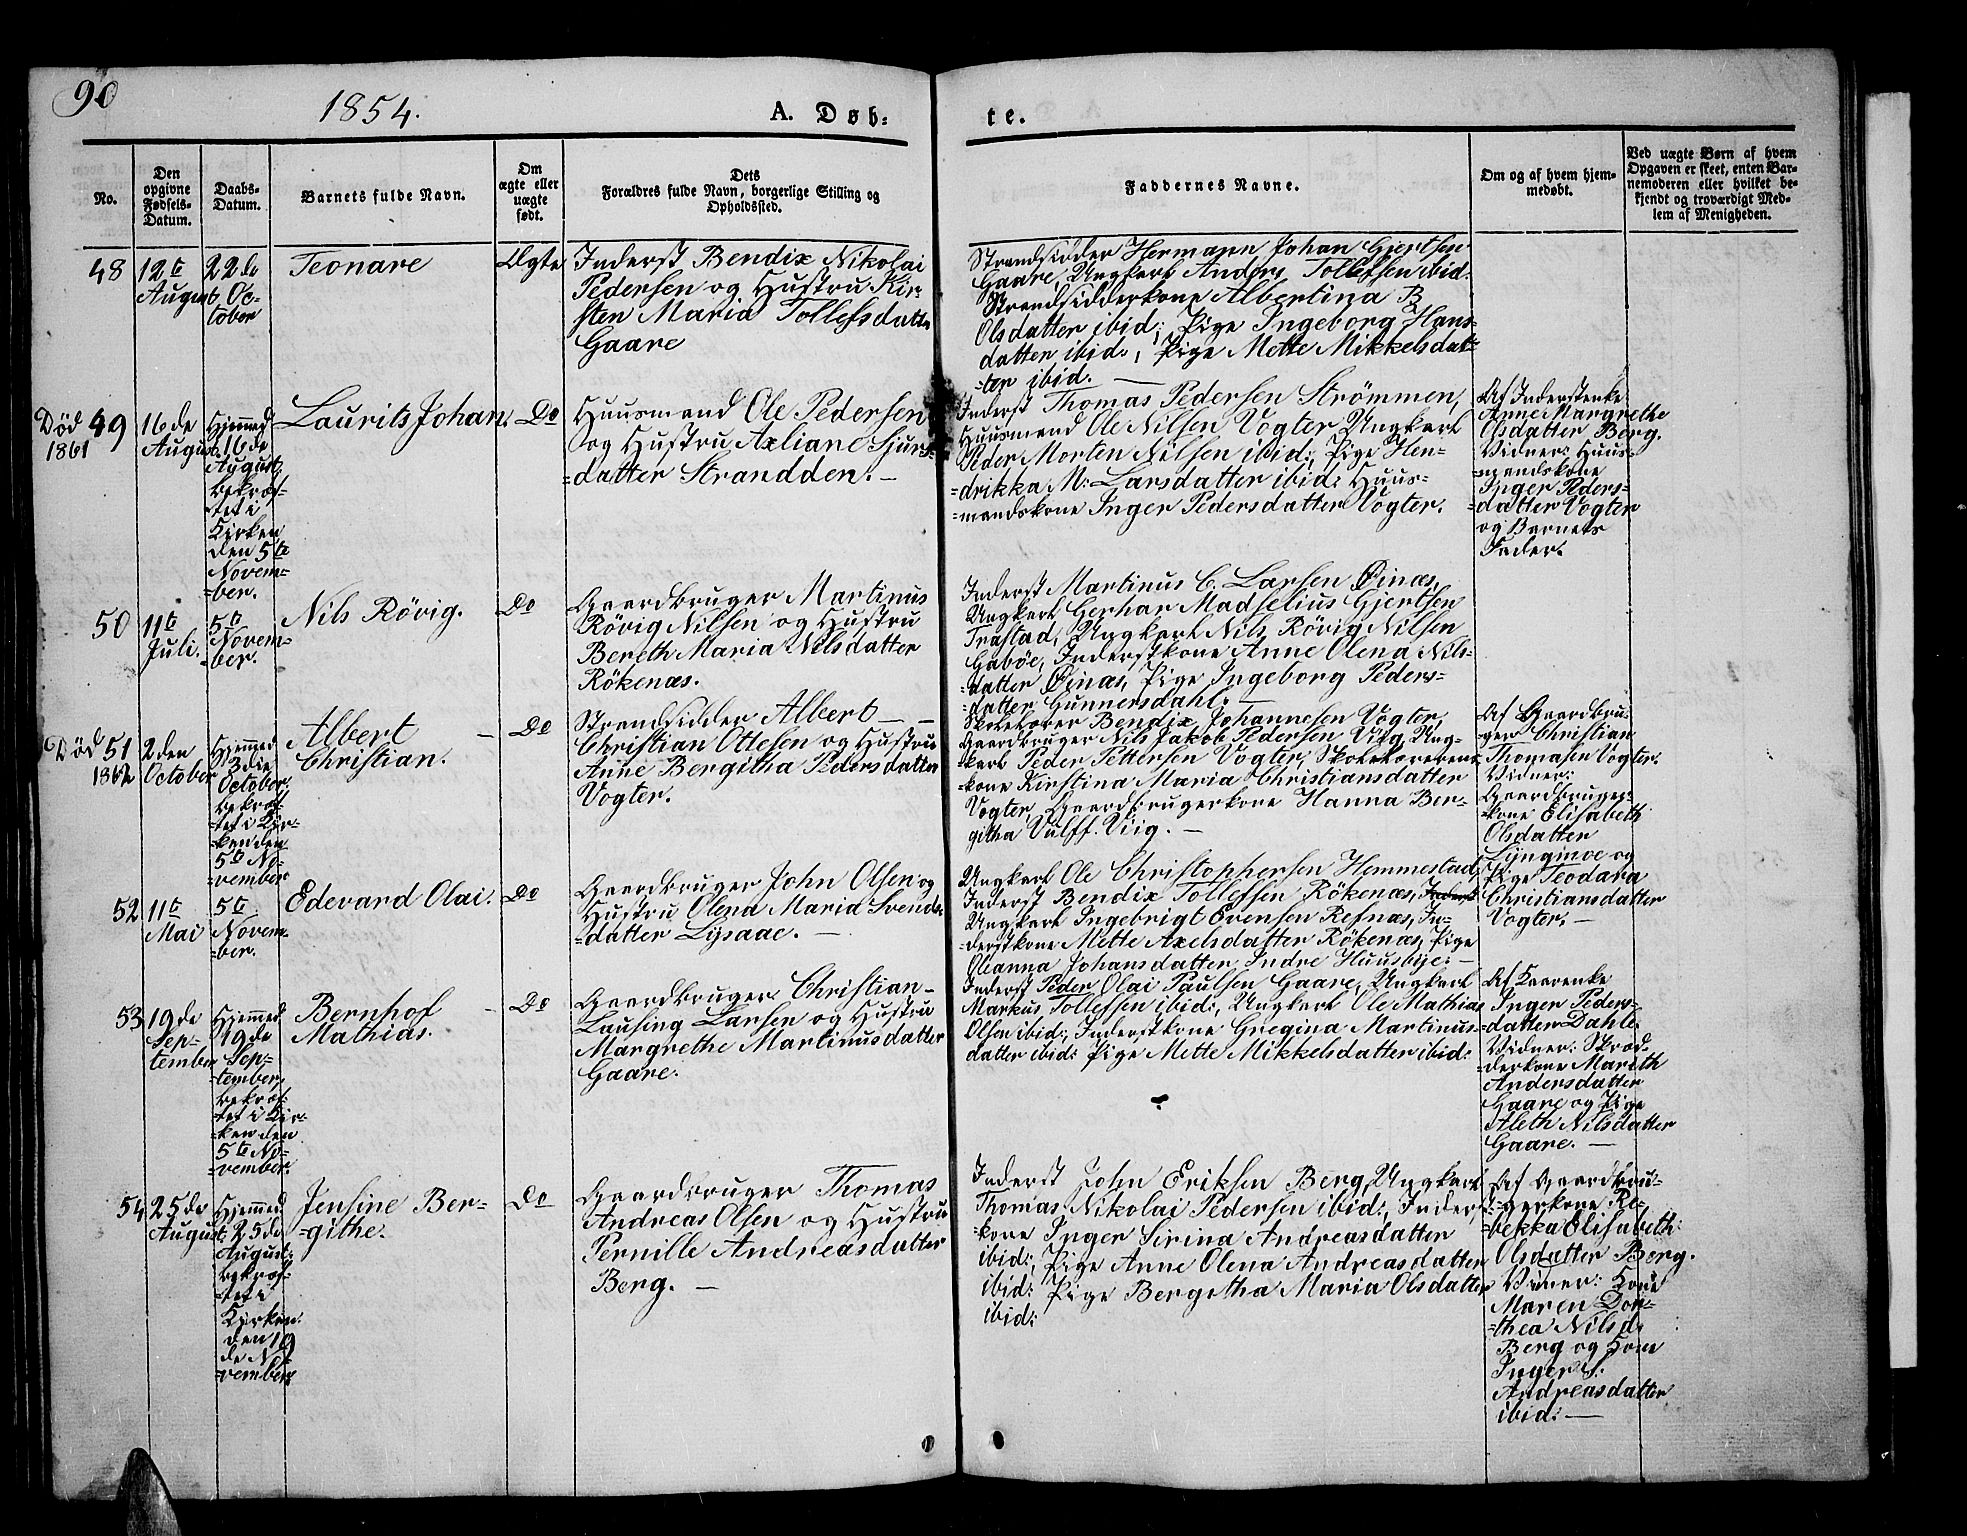 90
1854.
A. Døb-
te.
No.
Den
opgivne
Fødsels-
Datum.
Daabs-
Datum.
Barnets fulde Navn.
Om
ægte eller
uægte
født.
Dets
Forældres fulde Navn, borgerlige Stilling og
Opholdssted.
Faddernes Navne.
Om og af hvem hjem-
medøbt.
Ved uægte Børn af hvem
Opgaven er skeet, enten Bar-
nemoderen eller hvilket be-
kjendt og troværdigt Med-
lem af Menigheden.
48
12te
August
22de
Oc-
tober
Teonare
Ægte
Inderst Bendix Nikolai
Pedersen og Hustru Kir-
sten Maria Tollefsdatter
Gaare
Strandsidder Hermann Johan Gjertsen
Gaare, Ungkarl Anders Tollefsen ibid:
Strandsidderkone Albertina B
Olsdatter ibid:, Pige Ingeborg Hans-
datter ibid:, Pige Mette Mikkelsdat-
-ter ibid. —
Død
1861
49
16de
August
Hjemmed
16de
August,
bekræf-
-tet i
Kirken
den 5te
Novem-
-ber.
Laurits Johan.
Do
Huusmand Ole Pedersen
og Hustru Axliane Sjurs-
=datter Strandden. —
Inderst Thomas Pedersen Strömmen,
Huusmand Ole Nilsen Vogter Ungkarl
Peder Morten Nilsen ibid:, Pige Hen-
=drikka M. Larsdatter ibid: Huus-
=mandskone Inger Pedersdatter Vogter.
Af Inderstenke
Anne Margrethe
Olsdatter Berg.
Vidner: Huus-
=mandskone
Inger Peders-
=datter Vogter
og Barnets
Fader.
50
11te
Juli.
5te
Novem-
=ber.
Nils Rövig.
Do
Gaardbruger Martinus
Rövig Nilsen og Hustru
Bereth Maria Nilsdatter
Rökenæs.
Inderst Martinus C. Larsen Öinæs,
Ungkarl Gerhar Madselius Gjertsen
Trastad, Ungkarl Nils Rövig Nilsen
Gaböe, Inderstkone Anne Olena Nils-
=datter Öinæs, Pige Ingeborg Peders-
=datter Gunnersdahl. —
Død
1862
51
2den
October
Hjemmed
3die
October,
bekræf-
=tet i Kir-
=ken den
5te No-
=vember
Albert —
Christian.
Do
Strandsidder Albert — —
Christian Ottesen og Hustru
Anne Bergitha Pedersdatter
Vogter.
Skolelærer Bendix Johannesen Vogter,
Gaardbruger Nils Jakob Pedersen Viig, Ung-
karl Peder Pettersen Vogter, Skolelærerens
kone Kirstina Maria Christiansdatter
Vogter, Gaardbrugerkone Hanna Ber-
githa Vulff. Viig. —
Af Gaardbru-
=ger Christian
Thomasen Vogter.
Vidner:
Gaardbruger-
=kone Elisabeth
Olsdatter
Lyngmoe og
Pige Teodara
Christiansdatter
Vogter. —
52
11te
Mai
5te
Novem-
=ber.
Edevard Olai.
Do
Gaardbruger John Olsen og
Hustru Olena Maria Svends-
=datter Lysaae. —
Ungkarl Ole Christophersen Hemmestad,
Inderst Bendix Tollefsen Rökenæs, Inderst
Ungkarl Ingebrigt Evensen Refsnæs, In-
=derstkone Mette Axelsdatter Rökenæs, Pige
Oleanna Johansdatter Indre Huusbye: —
53
19de
Sep-
tember
Hjemmed
19de
Sep-
tember,
bekræf-
tet i Kir-
=ken den
5te No-
=vember.
Bernhof —
Mathias.
Do
Gaardbruger Christian —
Lausing Larsen og Hustru
Margrethe Martinusdatter
Gaare.
Inderst Peder Olai Paulsen Gaare, Ungkarl
Markus Tollefsen ibid:, Ungkarl Ole Mathias
Olsen ibid:, Inderstkone Gregina Martinus-
datter ibid: Pige Mette Mikkelsdatter ibid:
Af Kaarenke
Inger Peders-
=datter Dahle.
Vidner: Skræd-
=derkone Marith
Andersdatter
Gaare og Pige
Aleth Nilsdatter
Gaare. —
54
25de
August
Hjemmed
25de
August:
bekræf-
=tet i
Kirken
den 19
de No-
=vember
Jensine Ber-
=githe.
Do
Gaardbruger Thomas
Andreas Olsen og Hustru
Pernille Andreasdatter
Berg. —
Inderst John Eriksen Berg, Ungkarl
Thomas Nikolai Pedersen ibid:, Inderst
kone Inger Sirina Andreasdatter
ibid:, Pige Anne Olena Andreasdatter
ibid: Pige Bergitha Maria Olsdatter
ibid:
Af Gaardbru-
=gerkone Re-
=bekka Elisabeth
Olsdatter Berg.
Vidner: Kone
Maren Dor-
=thea Nilsd.
Berg og Kone
Inger S.
Andreasdatter
ibid: —